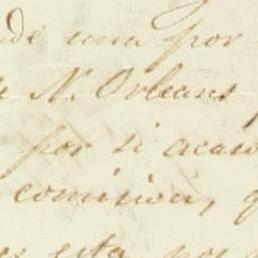 una por
N. Orleans
por si acaso
comision, q
esta por